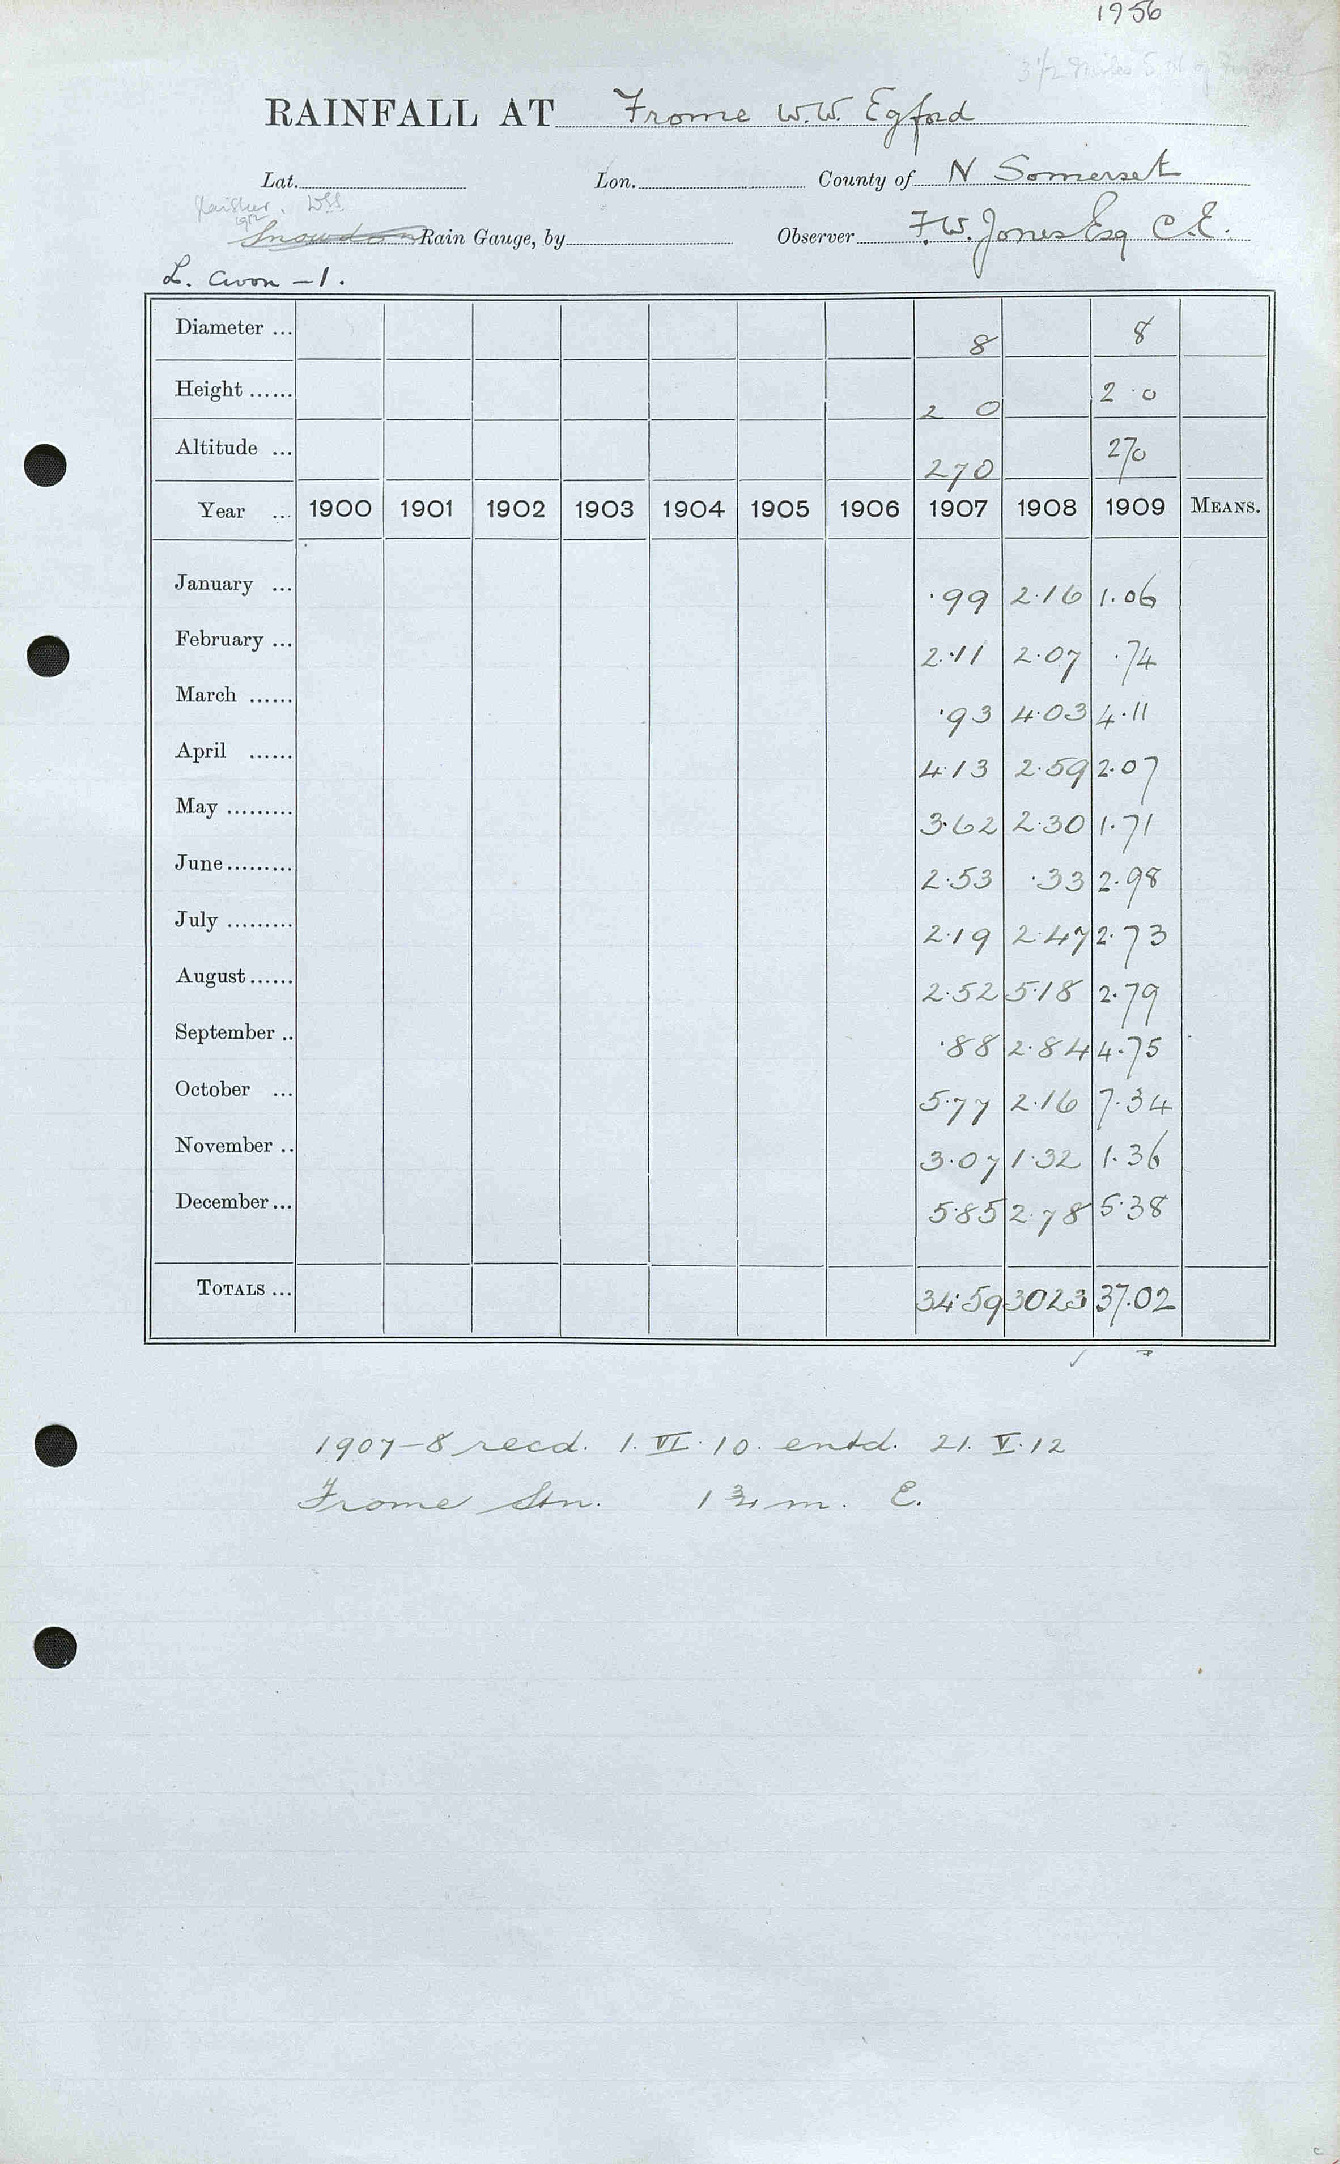 1956
3 1/2 Miles S W of Frome
RAINFALL AT Frome W.W. Egford
Lat. Lon. County of N Somerset
Glaisher. WSS
1912
Snowdon Rain Gauge, by Observer F.W. Jones Esq C.E.
L. Avon - 1.
Diameter ... 8 8
Height ...... 2 0 2 0
Altitude ... 270 270
Year ... 1900 1901 1902 1903 1904 1905 1906 1907 1908 1909 MEANS.
January ... ·99 2·16 1·06
February ... 2·11 2·07 ·74
March ...... ·93 4·03 4·11
April ...... 4·13 2·59 2·07
May ......... 3·62 2·30 1·71
June ......... 2·53 ·33 2·98
July ......... 2·19 2·47 2·73
August ...... 2·52 5·18 2·79
September .. ·88 2·84 4·75
October ... 5·77 2·16 7·34
November .. 3·07 1·32 1·36
December ... 5·85 2·78 5·38
TOTALS ... 34·59 3023 37·02
1907-8 recd. 1.VI.10. entd. 21.V.12
Frome Stn. 1 3/4 m. E.